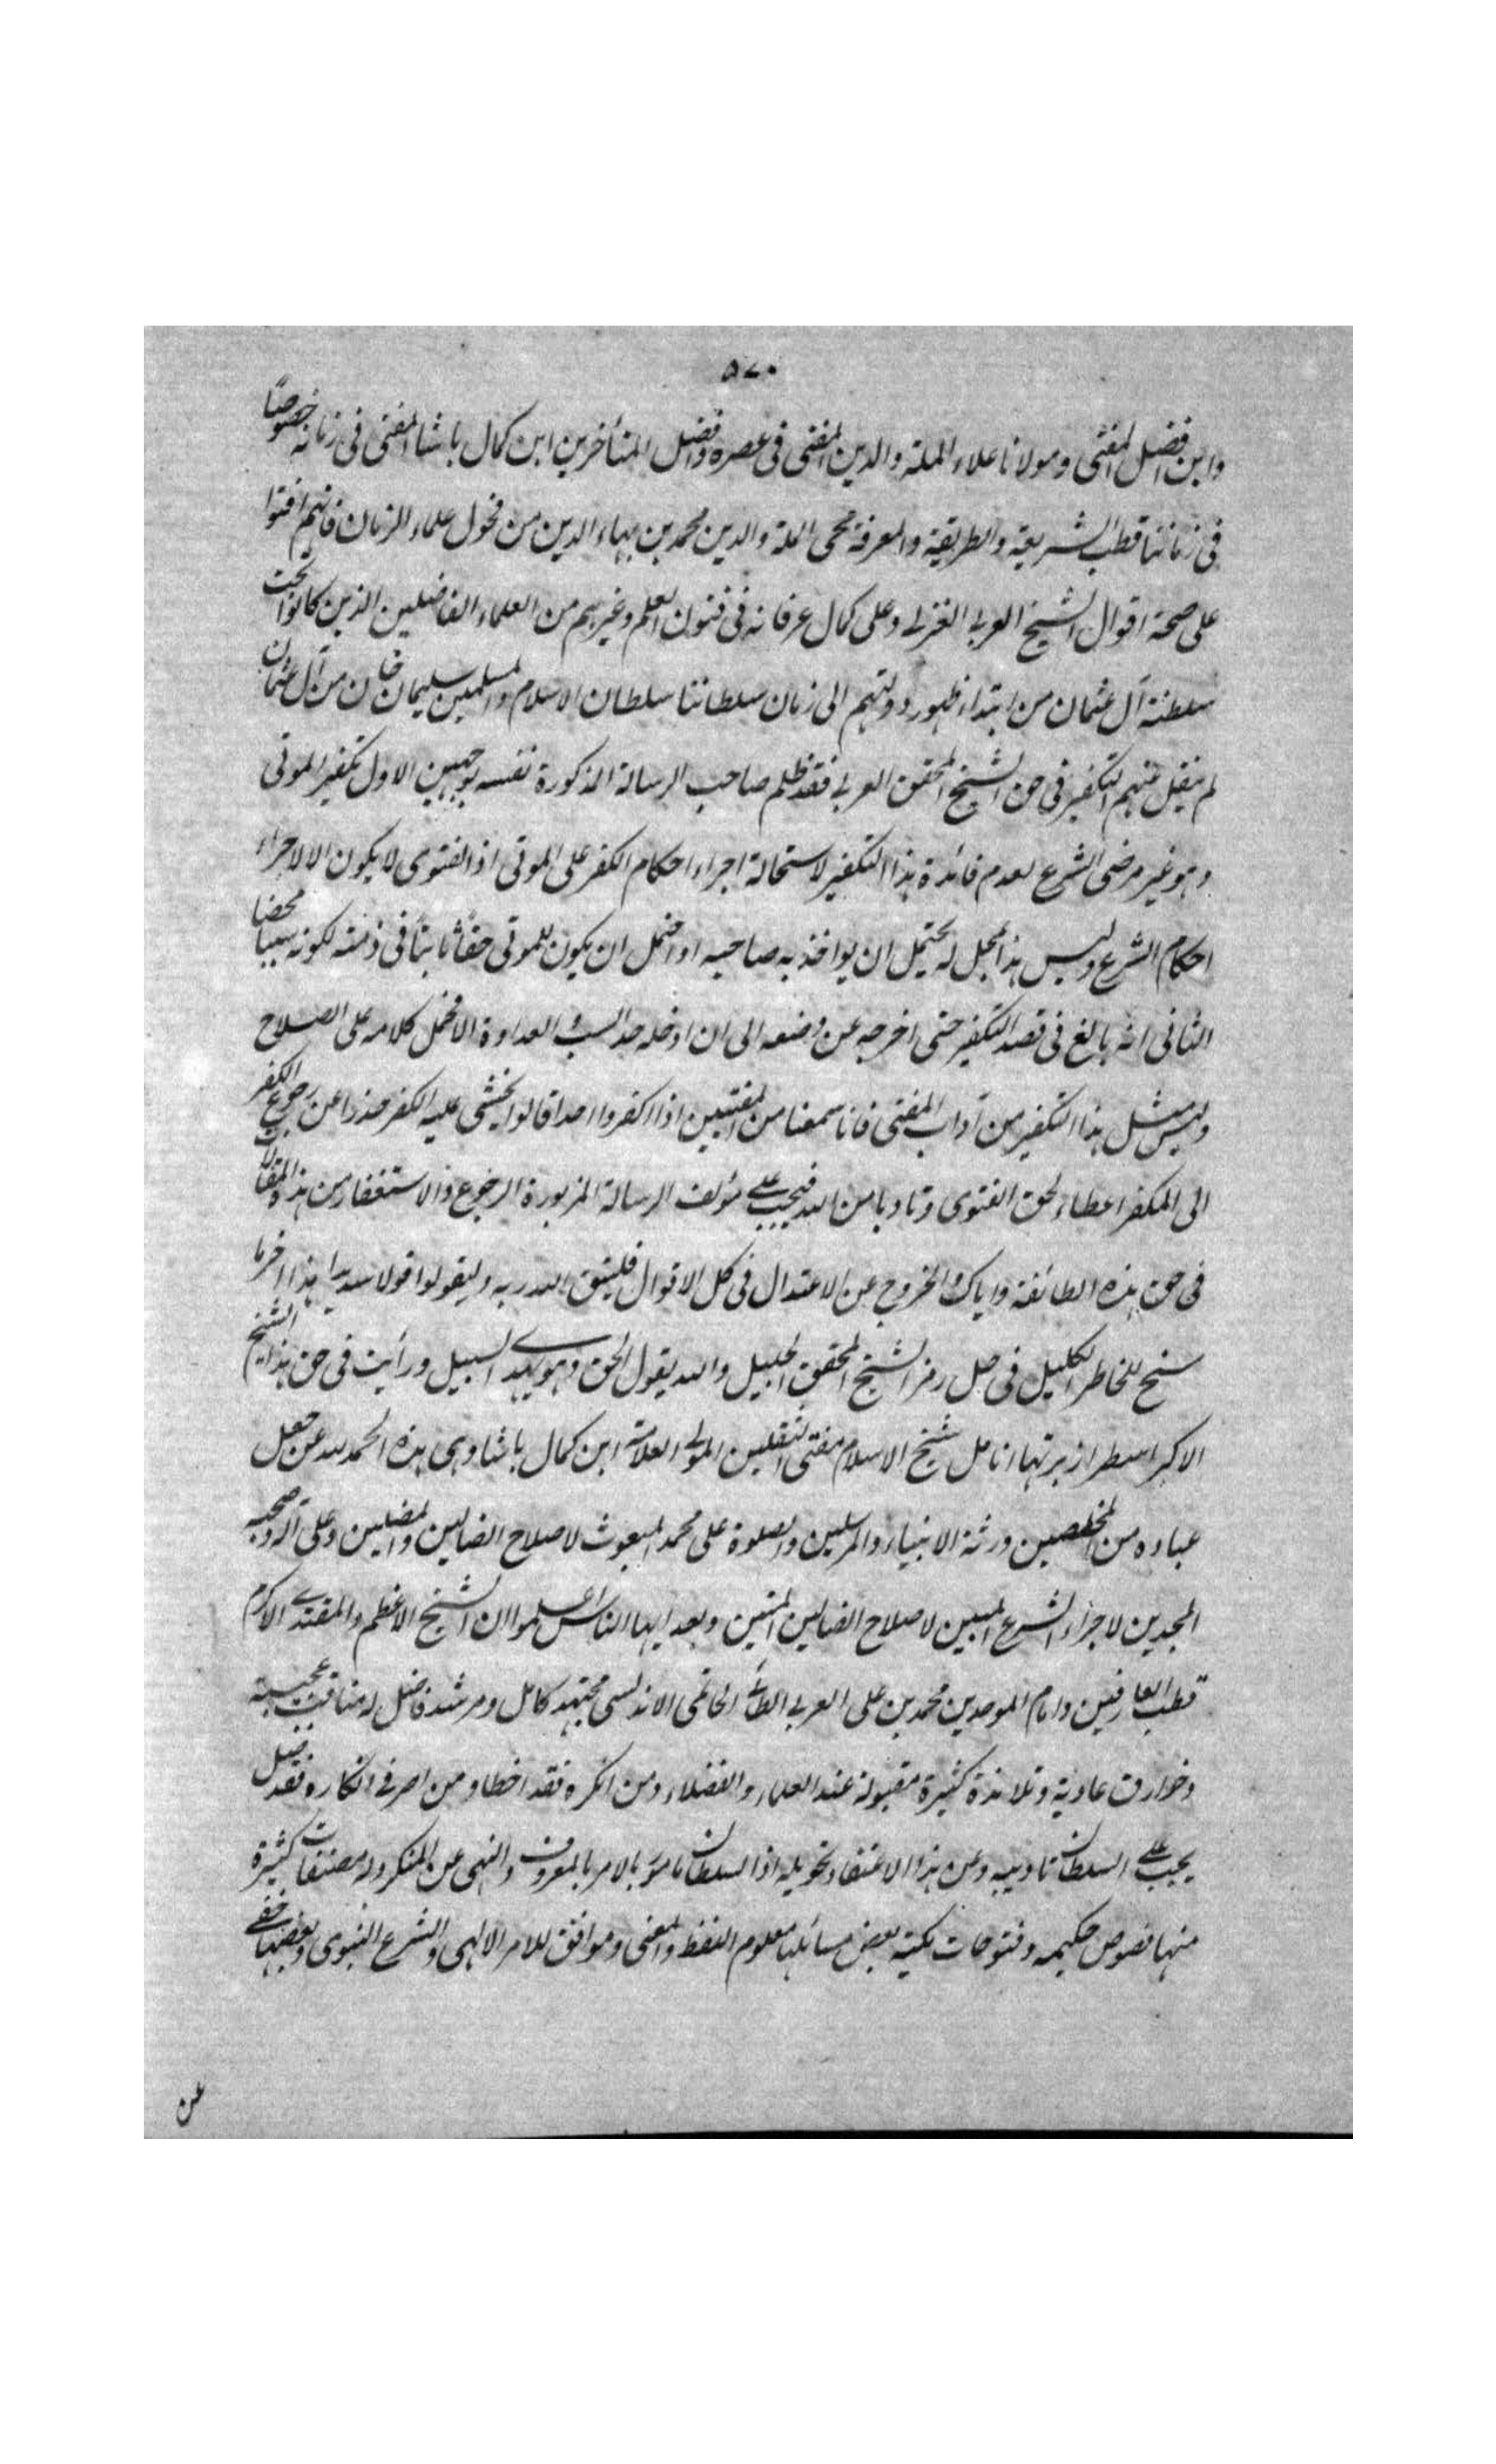 ٥٧٠
وابن افضل المفتى ومولانا علاء الملة والدين المفتى فى عصره وافضل المتأخرين ابن كمال باشا المفتى فى زمانه خصوصًا
فى زماننا قطب الشريعة والطريقة والمعرفة محى الملة والدين محمد بن بهاء الدين من فحول علماء الزمان فانهم افتوا
على صحة اقوال الشيخ العربى الغزلى وعلى كمال عرفانه فى فنون العلم وغيرهم من العلماء الفاضلين الذين كانوا تحت
سلطنة آل عثمان من ابتداء ظهور دولتهم الى زمان سلطاننا سلطان الاسلام والمسلمين سليمان خان من آل عثمان
لم ينقل عنهم التكفير فى حق الشيخ المحقق العربى فقد ظلم صاحب الرسالة المذكورة نفسه بوجهين الاول تكفير الموتى
وهو غير مرضى الشرع لعدم فائدة هذا التكفير لاستحالة اجراء احكام الكفر على الموتى اذ الفتوى لا يكون الا لاجراء
احكام الشرع وليس هذا محل له يحتمل ان يواخذ به صاحبه او احتمل ان يكون للموتى حقًا ثابتًا فى ذمته لكونه سببا محضا
الثانى انه بالغ فى قصد التكفير حتى اخرجه عن وضعه الى ان ادخله حد السب والعداوة الا فحمل كلامه على الصلاح
وليس مثل هذا التكفير من آداب المفتى فانا سمعنا من المفتيين اذا اكفروا احدا قالوا يخشى عليه الكفر حذرا عن رجوع الكفر
الى المكفر اعطاء لحق الفتوى وتادبا من الله فيجب على مؤلف الرسالة المزبورة الرجوع والاستغفار من هذا المقالات
فى حق هذه الطائفة واياك والخروج عن الاعتدال فى كل الاقوال فليتق الله ربه وليقولوا قولا سديدا هذا اخر ما
سنح للخاطر الكليل فى حل رمز الشيخ المحقق الجليل والله يقول الحق وهو يهدى السبيل ورأيت فى حق هذا الشيخ
الاكبر اسطرا زبرتها انامل شيخ الاسلام مفتى الثقلين المولى العلامة ابن كمال باشا وهى هذه الحمد لله عن جعل
عباده من المخلصين ورثة الانبياء والمرسلين والصلوة على محمد المبعوث لاصلاح الضالين والمضلين وعلى آله وصحبه
المجدين لاجراء الشرع المبين لاصلاح الضالين المتين وبعد ايها الناس اعلموا ان الشيخ الاعظم والمقتدى الاكرم
قطب العارفين وامام الموحدين محمد بن على العربى الطائى الحاتمى الاندلسى مجتهد كامل ومرشد فاضل له مناقب عجيبة
وخوارق عادية وتلامذة كثيرة مقبولة عند العلماء والفضلاء ومن انكره فقد اخطا ومن اصر فى انكاره فقد ضل
يجب على السلطان تاديبه وعن هذا الاعتقاد تحويله اذ السلطان مامور بالامر بالمعروف والنهى عن المنكر وله مصنفات كثيرة
منها فصوص حكيمه وفتوحات مكية بعض مسائلها معلوم اللفظ والمعنى وموافق للامر الالهى والشرع النبوى وبعضها خفى
عن